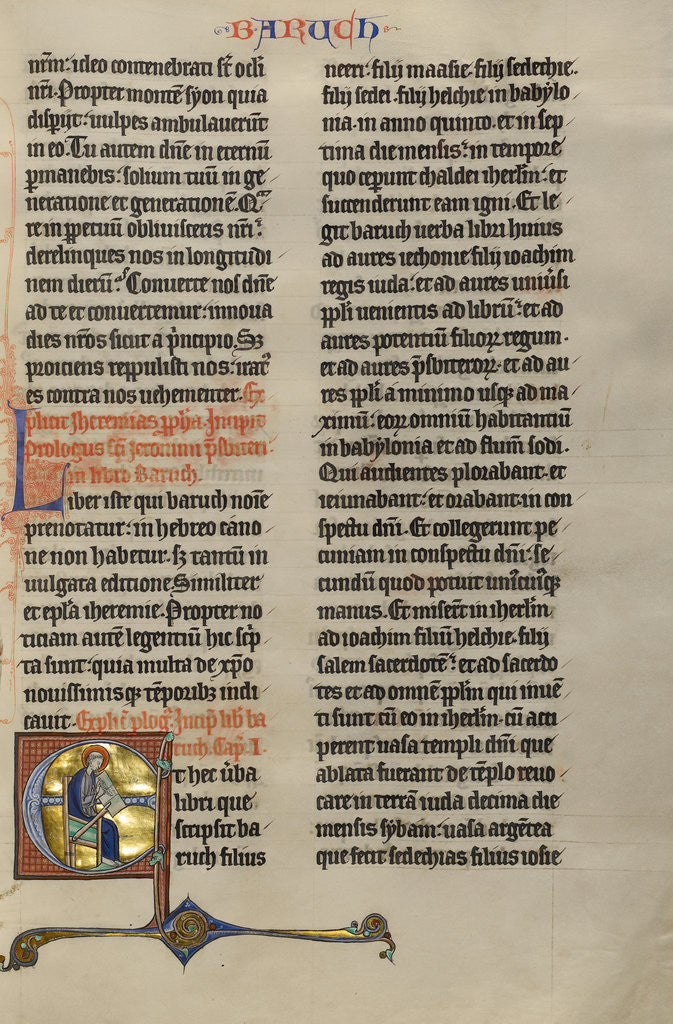 BARUCH
nr̄m: ideo contenebrati st̄ oc̄li
nr̄i. Propter montē syon quia
disperijt: vulpes ambulaverūt
in eo. Tu autem dn̄e in eternū
ꝑmanebis: solium tuū in ge
neratione et generationē. Qua
re in ꝑpetuū obliuisceris nr̄i:
derelinques nos in longitudi
nem dierū? Conuerte nos dn̄e
ad te et conuertemur: innoua
dies nr̄os sicut a p̄ncipio. Sꝫ
proiciens reppulisti nos: irat᷒
es contra nos uehementer. Ex
plicit Iheremias ꝓph̄a. Incipit
prologus sc̄i ieronimi p̄sbiteri
in libro Baruch.
Liber iste qui baruch noīe
prenotatur: in hebreo cano
ne non habetur. sꝫ tantū in
uulgata editione Similiter
et ep̄la iheremie. Propter no
ticiam autē legentiū hic sc̄p
ta sunt: quia multa de xp̄o
nouissimisqꝫ tēporibꝫ indi
cauit. Explic̄ ꝓlog᷒. Incip̄ lib̄ ba
ruch. Cap̄. I.
Et hec u̾ba
libri que
scripsit ba
ruch filius
neeri: filij maasie. filij sedechie.
filij sedei. filij helchie in babylo
nia. in anno quinto. et in sep
tima die mensis: in tempore
quo ceperunt chaldei iherl̄m: et
succenderunt eam igni. Et le
git baruch uerba libri huius
ad aures iechonie filij ioachim
regis iuda: et ad aures uniu̾si
ppl̄i uenientis ad librū: et ad
aures potentiū filioꝝ regum.
et ad aures p̄sbiteroꝝ. et ad au
res ppl̄i a minimo usqꝫ ad ma
ximū: eoꝝ omniū habitantiū
in babylonia et ad flum̄ sodi.
Qui audientes plorabant. et
ieiunabant: et orabant in con
spectu dn̄i. Et collegerunt pe
cuniam in conspectu dn̄i: se
cundū quod potuit uni᷒cui᷒qꝫ
manus. Et miser̄t in iherl̄m
ad ioachim filiū helchie. filij
salem sacerdotē: et ad sacerdo
tes et ad omnem ppl̄m qui inuē
ti sunt cū eo in iherl̄m. cū acci
perent uasa templi dn̄i que
ablata fuerant de tēplo reuo
care in terrā iuda decima die
mensis sybam: uasa argētea
que fecit sedechias filius iosie